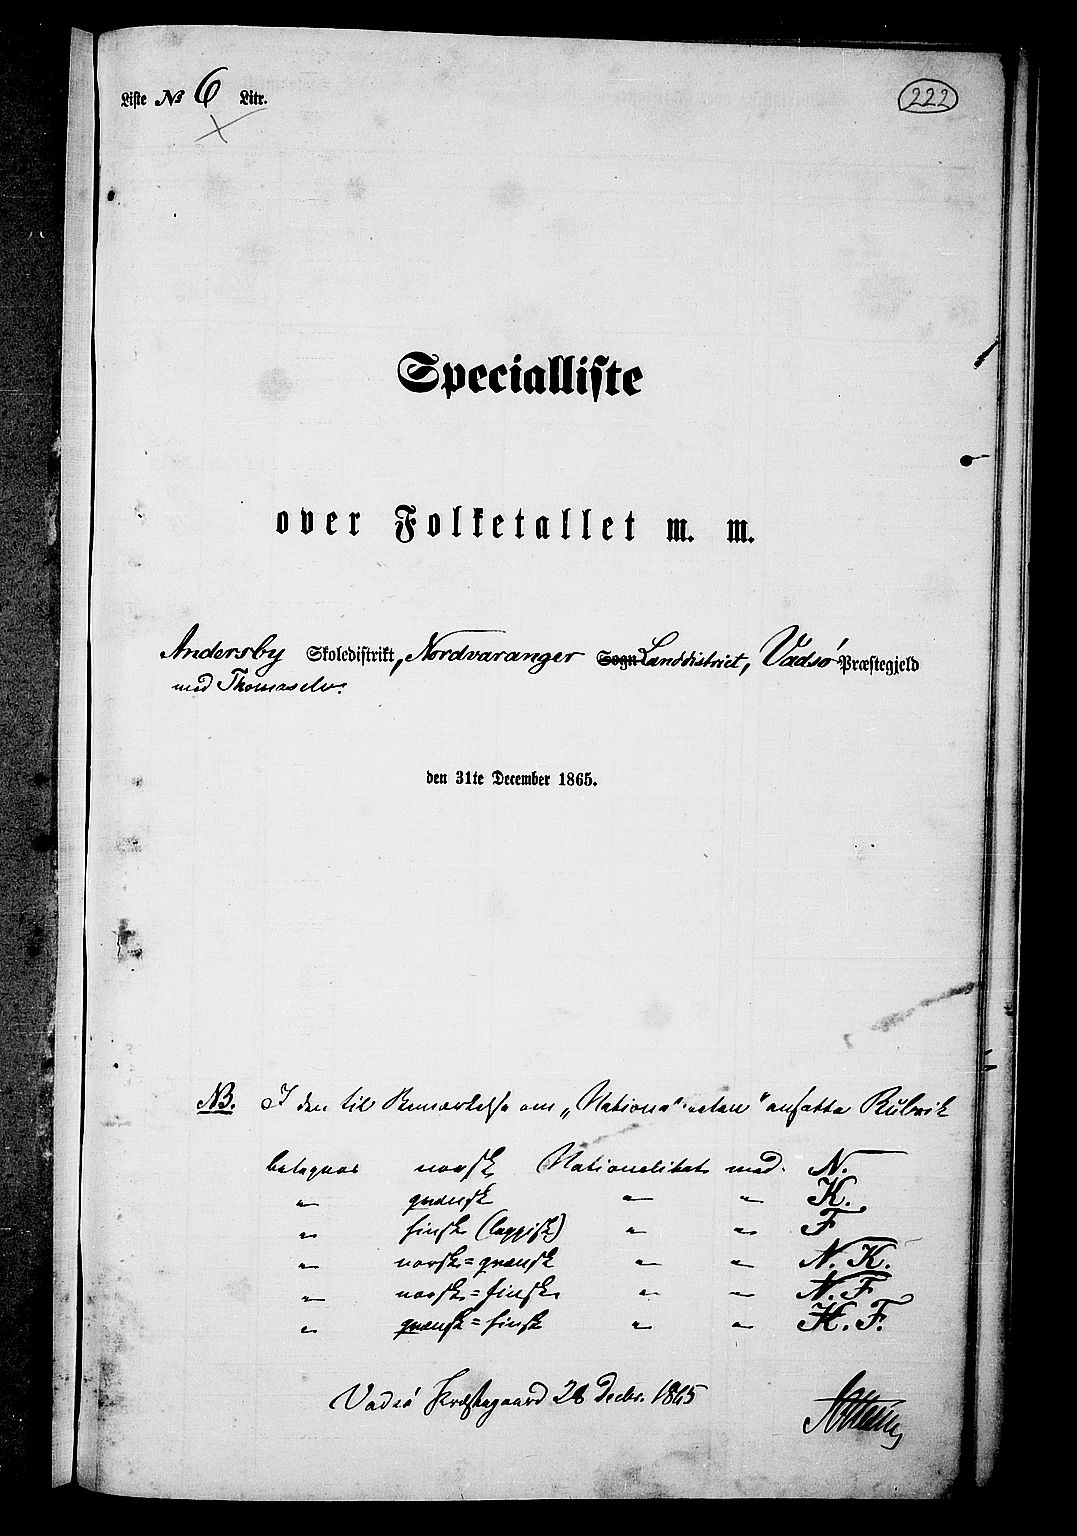 Liste № 6 Litr.
222
Specialliste
over Folketallet m. m.
Andersby Skoledistrikt, Nordvaranger Sogn Landdistrict, Vadsø Præstegjeld
med Thomaselv.
den 31te December 1865.
NB. I den til Bemærkelse om „Nationaliteten" ansatte Rubrik
betegnes norsk Nationalitet med N.
„ qvænsk „ „ K.
„ finsk (lappisk) „ „ F
„ norsk=qvænsk „ „ N. K.
„ norsk=finsk „ „ N. F
„ qvænsk=finsk „ „ K. F.
Vadsø Præstegaard 28 Decbr. 1865